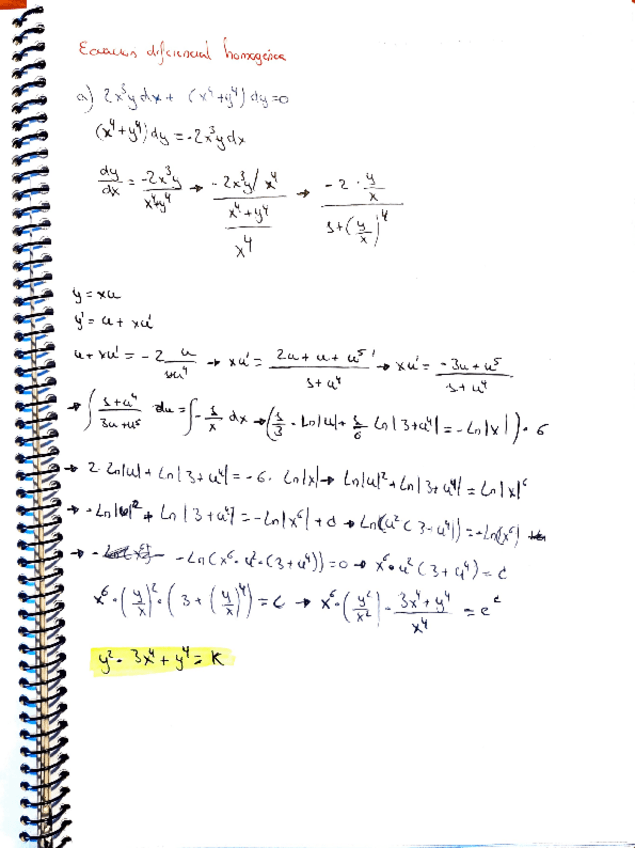 Ecuación diferencial homogénea
a) 2x³y dx + (x⁴+y⁴) dy = 0
(x⁴+y⁴) dy = -2x³y dx
dy/dx = -2x³y/(x⁴+y⁴) → (-2x³y/x⁴)/((x⁴+y⁴)/x⁴) → (-2·y/x)/(1+(y/x)⁴)
y = xu
y' = u + xu'
u + xu' = -2 u/(1+u⁴) → xu' = (2u+u+u⁵)/(1+u⁴) → xu' = (-3u+u⁵)/(1+u⁴)
→ ∫ (1+u⁴)/(3u+u⁵) du = ∫ -1/x dx → (1/3 · Ln|u| + 1/6 Ln|3+u⁴| = -Ln|x|) · 6
→ 2·Ln|u| + Ln|3+u⁴| = -6·Ln|x| → Ln|u|² + Ln|3+u⁴| = Ln|x|⁶
→ -Ln|u|² + Ln|3+u⁴| = -Ln|x⁶| + d → Ln(u²(3+u⁴)) = -Ln(x⁶)
→ -Ln(x⁶·u²·(3+u⁴)) = 0 → x⁶·u²(3+u⁴) = C
x⁶·(y/x)²·(3+(y/x)⁴) = C → x⁶·(y²/x²)·(3x⁴+y⁴)/x⁴ = e^c
y²·3x⁴+y⁴ = K